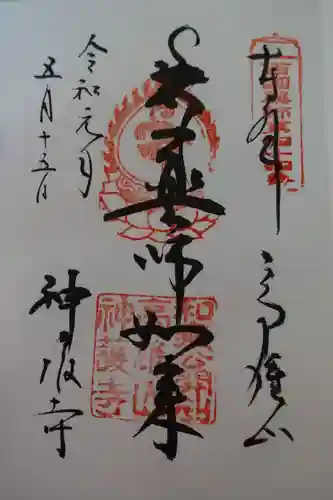 奉拝
高雄山
薬師如来
令和元年
五月十五日
神護寺
和気公霊廟
高雄山
神護寺